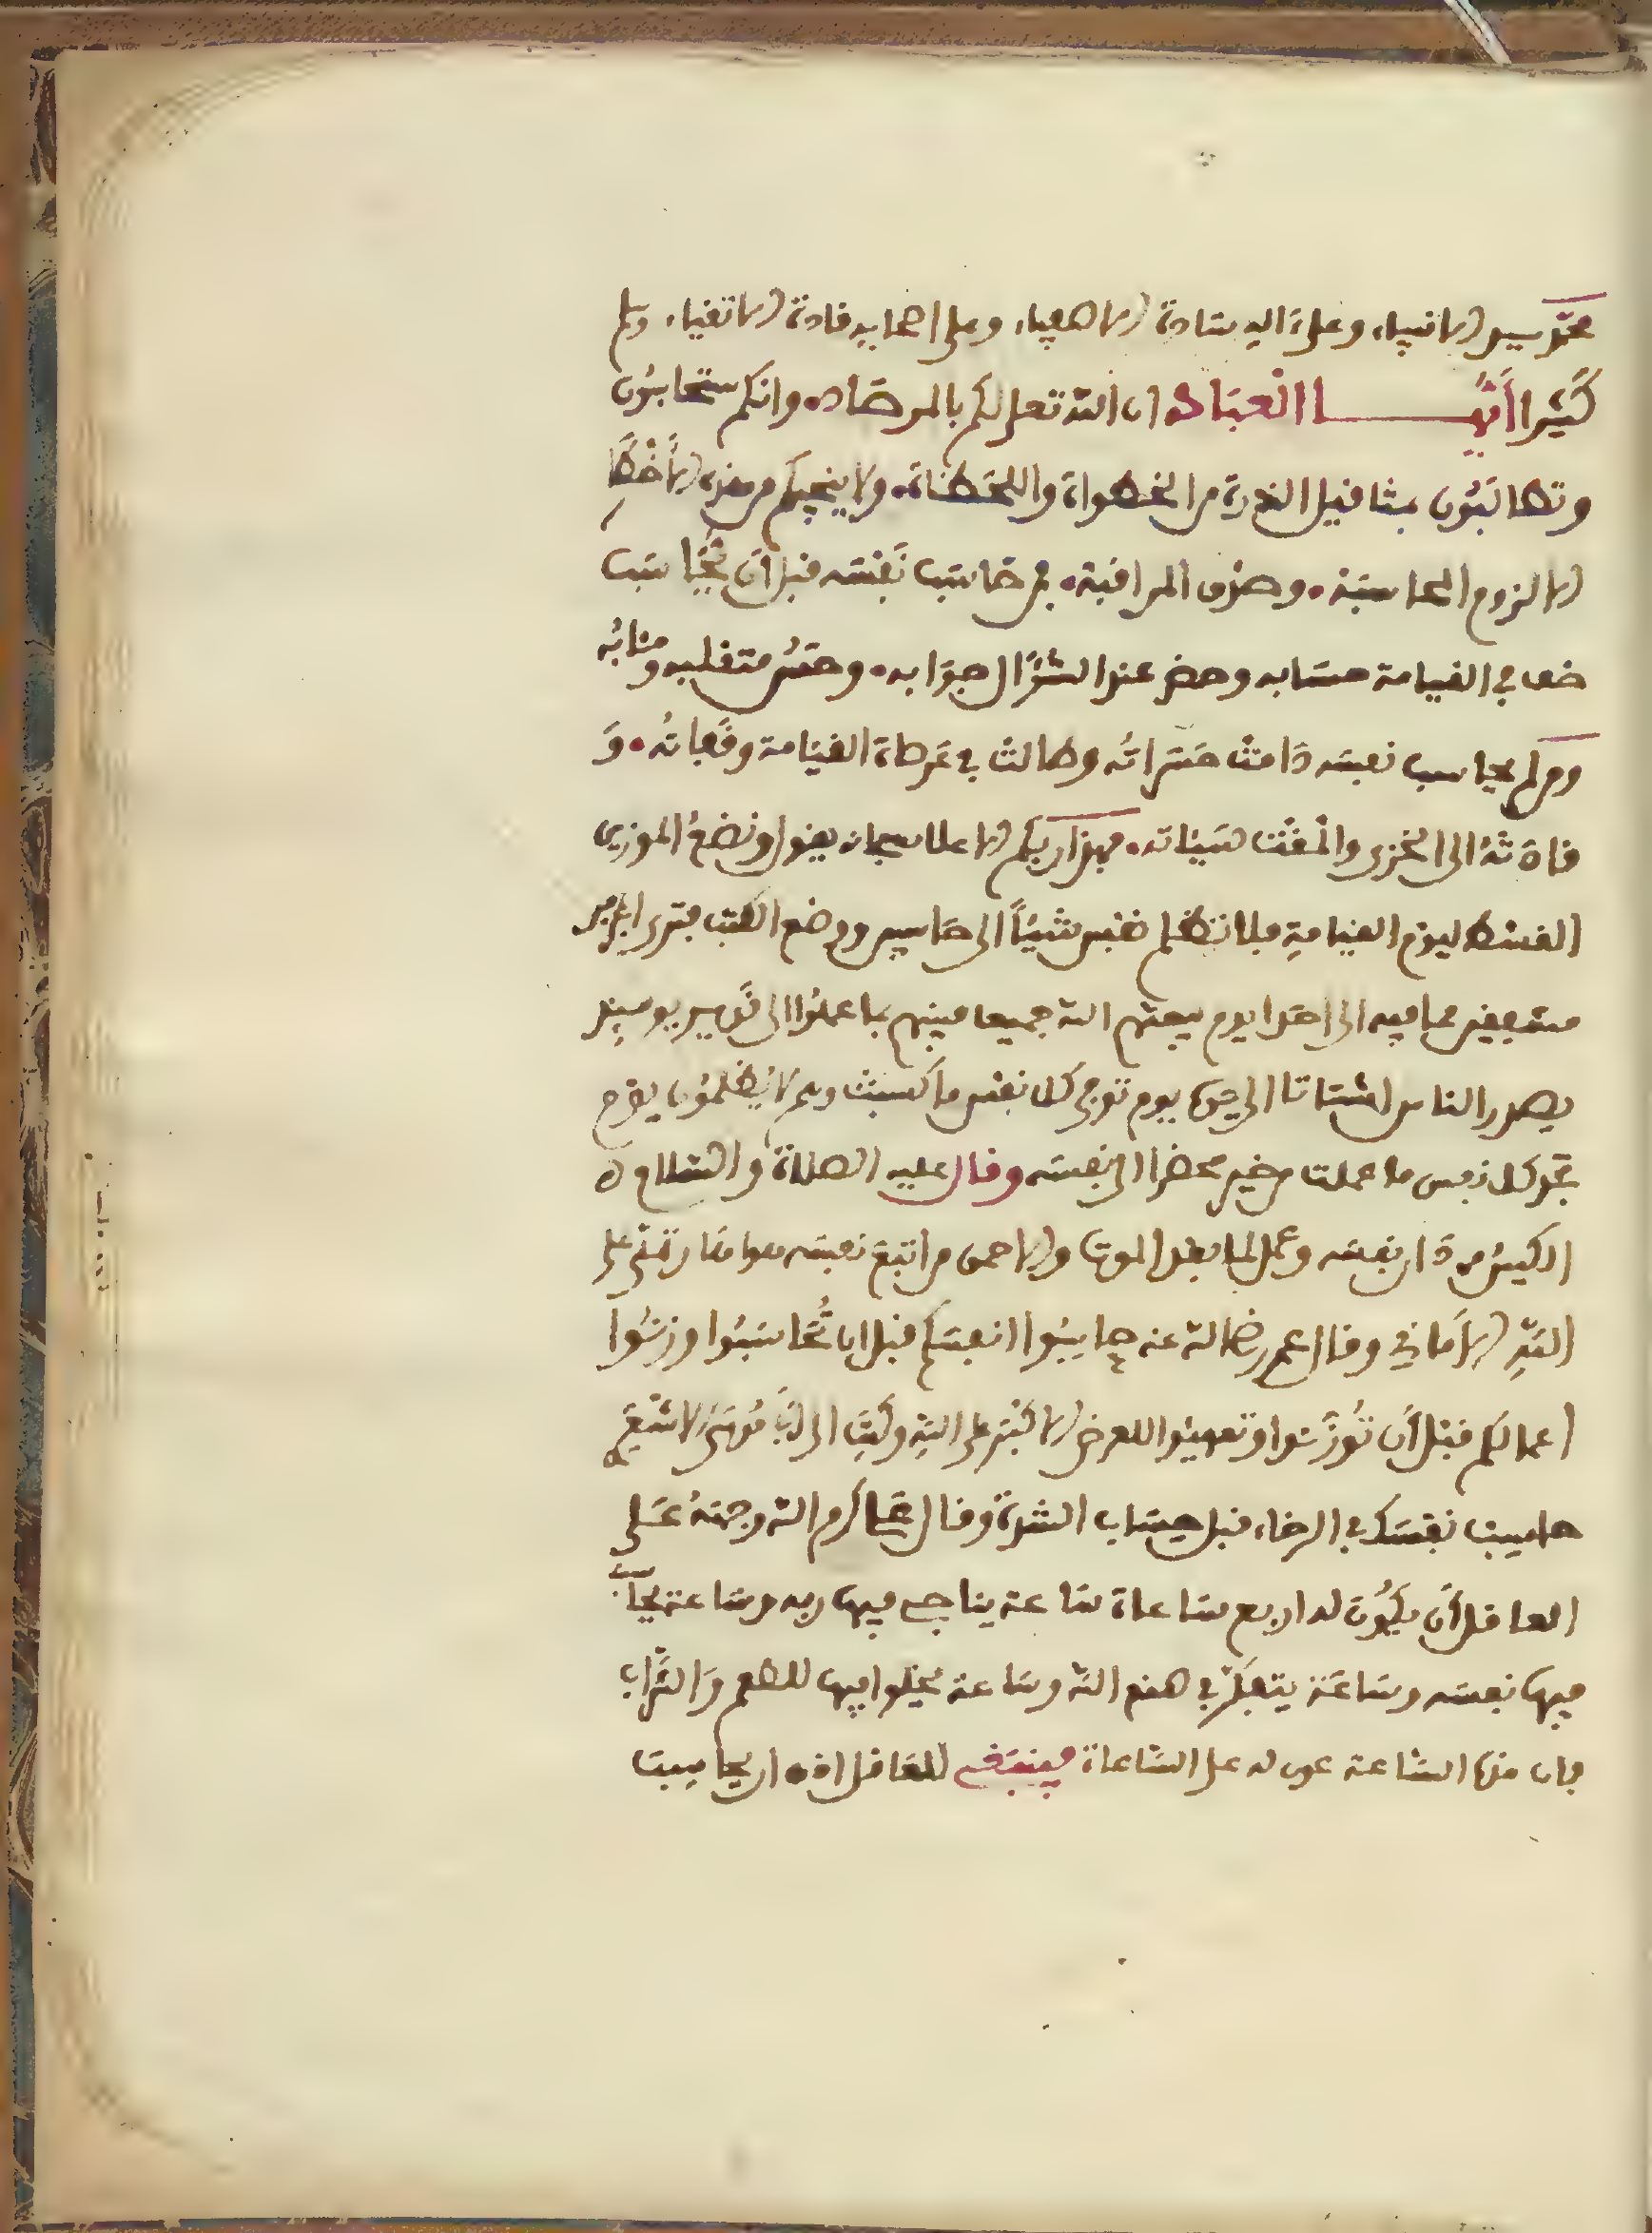 محمد سيد الانبياء وعلى ءاله سادة الاصفياء وعلى اصحابه قادة الاتقياء وسلم
كَثيرا أيُّهـــا العبَاد ان الله تعلى لكم بالمرصَاد وانكم ستحاسَبُون
وتطالَبُون بمثاقيل الذرة من الخطراة واللحَظاة ولا ينجيكم من هذه الأخْطار
الا لزوم المحاسبَة وصدْق المراقبة فمن حَاسَب نَفْسَه قبل أن يُحَاسَب
خف في القيامة حسَابه وحضر عند السُّؤَال جوَابه وحسُن متقلبه ومئابُه
ومن لم يحاسب نفسَه دَامتْ حَسَراتُه وطالت في عَرصاة القيَامة وقَفاتُه وَ
قادَتْهُ الى الخزى والمَقْت سَيئاته فهذا ربكم الاعلا سبحانه يقول ونضَعُ الموزين
القسْط ليوْم القيامةِ فلا تظلم نفس شَيْئًا الى حاسبين ووضع الكتب فترى المجرمين
مشفقين مما فيه الى احَدا يوم يبعثهم الله جميعا فينبئهم بما عملُوا الى شَهيد يومئِذ
يصدر الناس اشتَاتا الى يَرَه يوم توفى كل نفس ما كسبتْ وهم لا يُظلمُون يوْم
تجد كل نفس ما عملت من خير محضرا الى نفسَه وقال عليه الصلاة والسَّلام
الكيسُ من دَان نفسَه وعمل لما بعد الموت والاحمق من اتبَع نفسَه هواهَا وتمَنَّى على
اللهِ الأَماني وقال عمر رضي الله عنه حاسِبُوا انفسَكم قبل ان تُحَاسَبُوا وزنُوا
اعمالكم قبْل أن تُوزَنوا وتهيئوا للعرض الاكْبَر على اللهِ وكتَبَ الى أبي مُوسَى الاشْعَري
حاسِبْ نفسَك في الرخاء قبل حسَاب الشدة وقال عَلي كرم الله وجهَهُ عَلى
العاقل أن يكُون له اربع سَاعاة سَاعة يناجي فيها ربه وسَاعة يحاسب
فيها نفسَه وسَاعَة يتفكَّر في صنع الله وسَاعة يخلوا فيها للمطعم وَالشَّراب
فان هذه السَّاعة عون له على السَّاعاة فينبَغي للعَاقل اذا ان يحاسِبَ